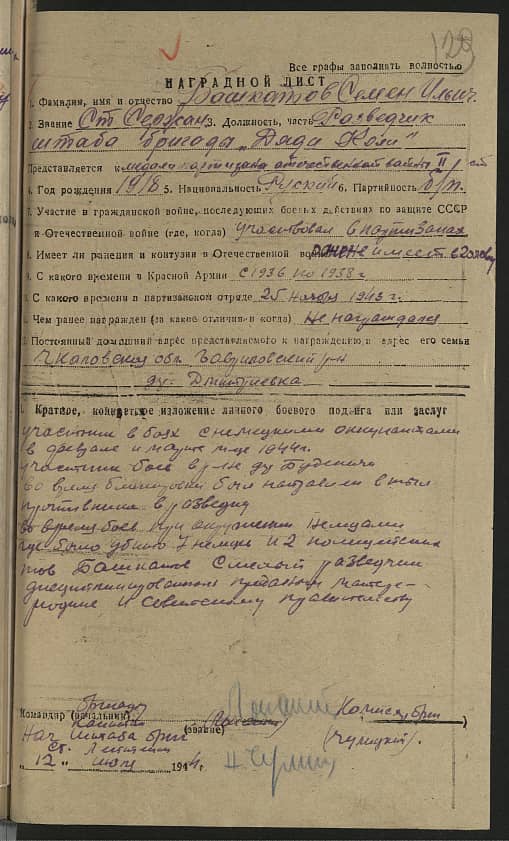 129
Все графы заполнять полностью
НАГРАДНОЙ ЛИСТ
1. Фамилия, имя и отчество Башкатов Семен Ильич
2. Звание Ст. Сержан 3. Должность, часть Разведчик
штаба бригады „Дяди Коли"
Представляется к медали партизана отечественной войны II ст
4. Год рождения 1918 5. Национальность Руский 6. Партийность б/п.
7. Участие в гражданской войне, последующих боевых действиях по защите СССР
и Отечественной войне (где, когда) участвовал в партизанах
8. Имеет ли ранения и контузии в Отечественной войне имеет в голову
9. С какого времени в Красной Армии с 1936 по 1938 г.
С какого времени в партизанском отряде 25 ноября 1943 г.
Чем ранее награжден (за какое отличия и когда) Не награждался
Постоянный домашний адрес представляемого к награждению и адрес его семьи
Чкаловская обл. Гавриловский р-н
д. Дмитриевка
Краткое, конкретное изложение личного боевого подвига или заслуг
участник в боях с немецкими окупантами
в феврале и марте м-це 1944 г.
участник боев в р-не д.
во время блокировки был направлен в тыл
противника в разведку
во время боев при окружении немцами
где было убито 7 немцев и 2 полицейских
тов Башкатов Смелый разведчик
дисциплинированный преданный матере-
родине и советскому правительству
бригады
Командир (начальник) Капитан
(звание) Комисар бриг
Нач штаба бриг
(Чулицкий).
Ст. Лейтенант
„12" июля 1944 г.